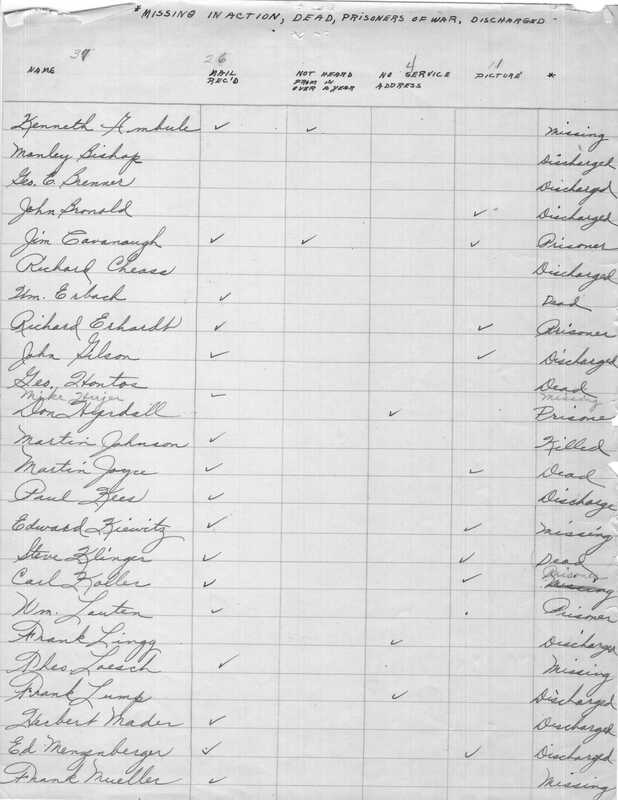 * MISSING IN ACTION, DEAD, PRISONERS OF WAR, DISCHARGED
26 4 11
NAME MAIL REC'D NOT HEARD FROM IN OVER A YEAR NO SERVICE ADDRESS PICTURE *
Kenneth Ambule ✓ ✓ Missing
Manley Bishop Discharged
Geo. E. Brenner Discharged
John Bronold ✓ Discharged
Jim Cavanaugh ✓ ✓ ✓ Prisoner
Richard Cheass Discharged
Wm. Erbach ✓ Dead
Richard Erhardt ✓ ✓ Prisoner
John Gilson ✓ ✓ Discharged
Geo. Hontos Dead
Mike ✓ Missing
Don ✓ Prisone
Martin Johnson ✓ Killed
Martin Joyce ✓ ✓ Dead
Paul Kees ✓ Discharge
Edward Kiewitz ✓ ✓ Missing
Steve Klinger ✓ ✓ Dead
Carl Koller ✓ ✓ Prisoner Missing
Wm. Lauten ✓ Prisoner
Frank Lingg ✓ Discharged
Theo Loesch ✓ Missing
Frank Lump ✓ Discharged
Herbert Mader ✓ Discharged
Ed Mengenberger ✓ ✓ Discharged
Frank Mueller ✓ Missing